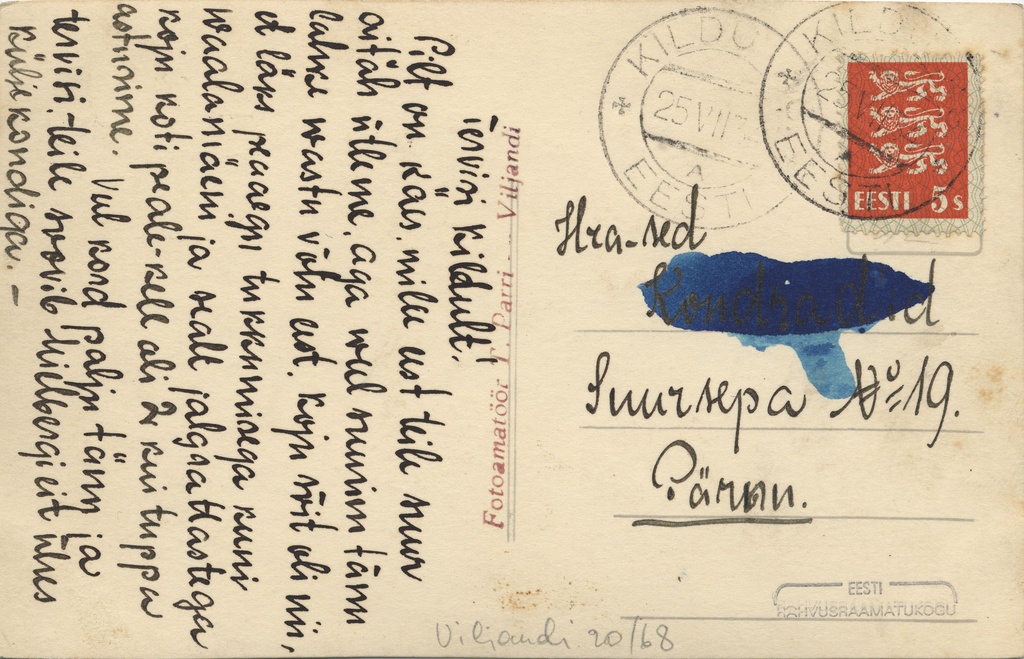 Tervisi Kildult!
Pilt on käes, mille eest teile suur
aitäh ütleme, aga veel suurim tänn
lahke vastu võtu eest. koju sõit oli nii,
et läks peaegu tukkumisega kuni
vaalamäeni ja sealt jalgrattastega
koju koti peale. kell oli 2 kui tuppa
astusime. Vul kord palju tänn ja
tervisi teile soovib
külikondiga. –
Fotoamatöör T. Parri - Viljandi
KILDU
25 VII
A
EESTI
KILDU
EESTI
EESTI 5 s
Hra-sed
Suursepa No 19.
Pärnu.
EESTI
RAHVUSRAAMATUKOGU
Viljandi 20/68